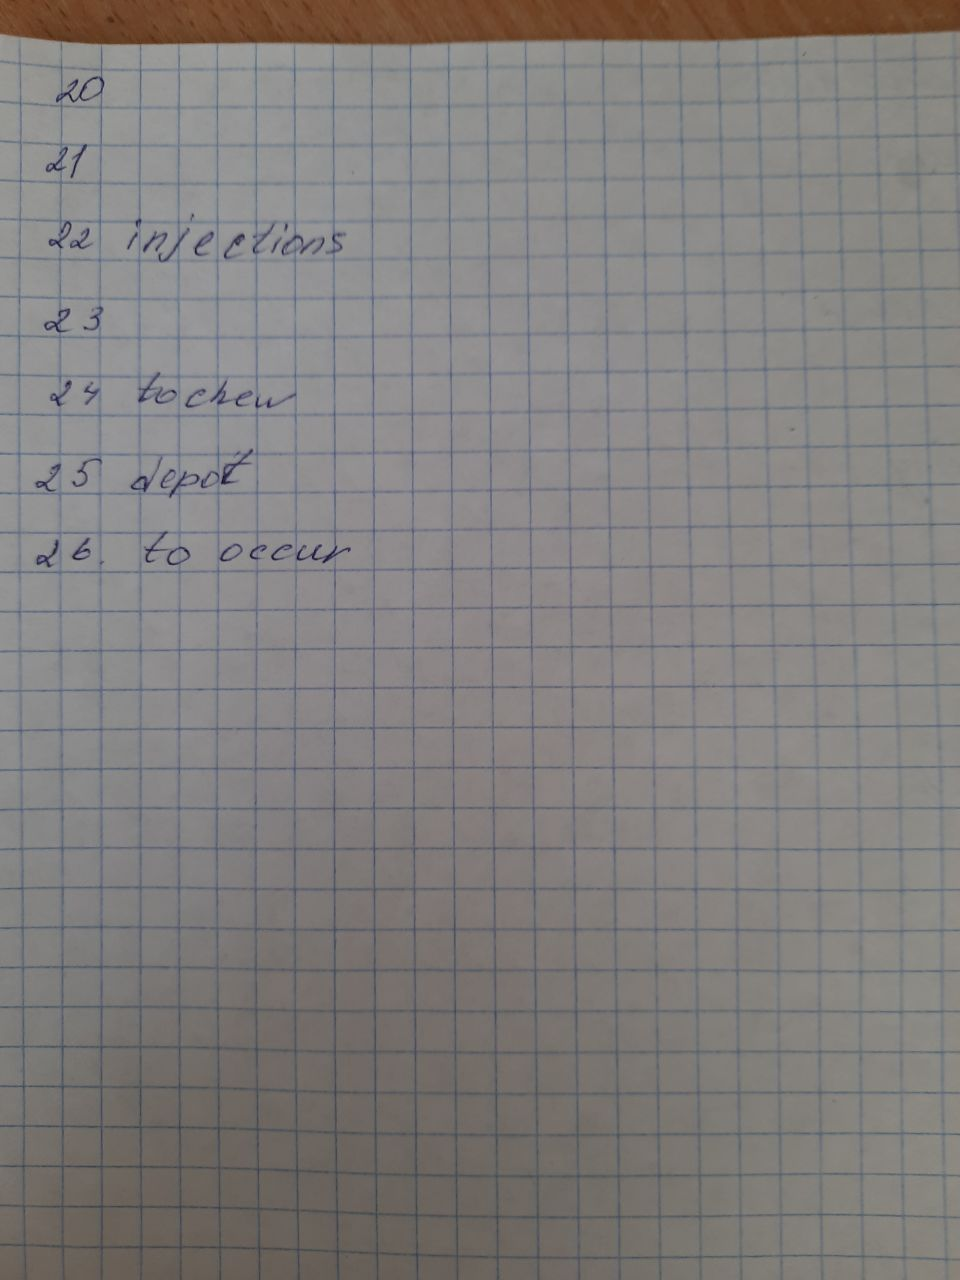 20
21
22 injections
23
24 to chew
25 depot
26. to occur